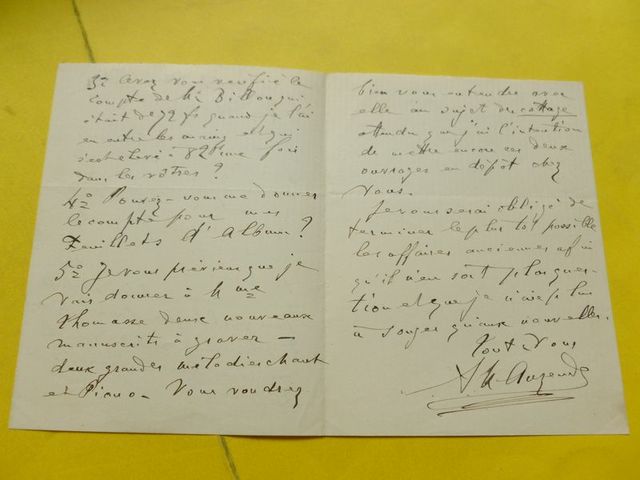 3º Avez vous verifié le
compte de Mr Billon qui
était de 72 fs quand je l'ai
eu entre les mains et qui
s'est élevé à 82 une fois
dans les vôtres ?
4º Pouvez-vous me donner
le compte pour mes
Feuillets d'Album ?
5º Je vous préviens que je
vais donner à Mme
Thomasse deux nouveaux
manuscrits à graver –
deux grandes mélodies chant
et Piano – Vous voudrez
bien vous entendre avec
elle au sujet du
attendu que j'ai l'intention
de mettre encore ces deux
ouvrages en dépôt chez
vous.
Je vous serai obligé de
terminer le plus tôt possible
les affaires anciennes afin
qu'il n'en soit plus ques-
tion et que je n'aie plus
à songer qu'aux nouvelles.
Tout Vous
Auzende